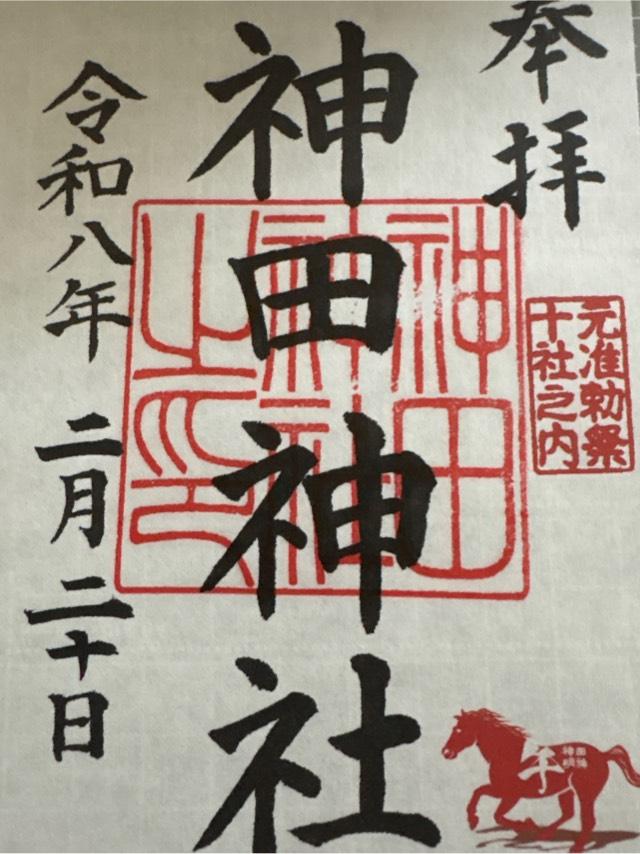 奉拝
元准勅祭
十社之内
神田神社
神田
神社
之印
令和八年 二月二十日
午
神田
明神